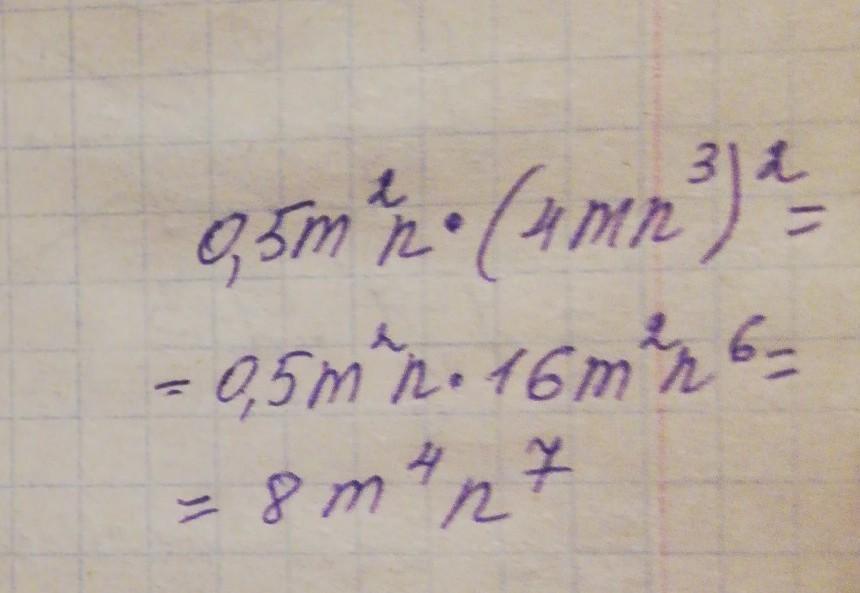 0,5m²n·(4mn³)²=
=0,5m²n·16m²n⁶=
=8m⁴n⁷